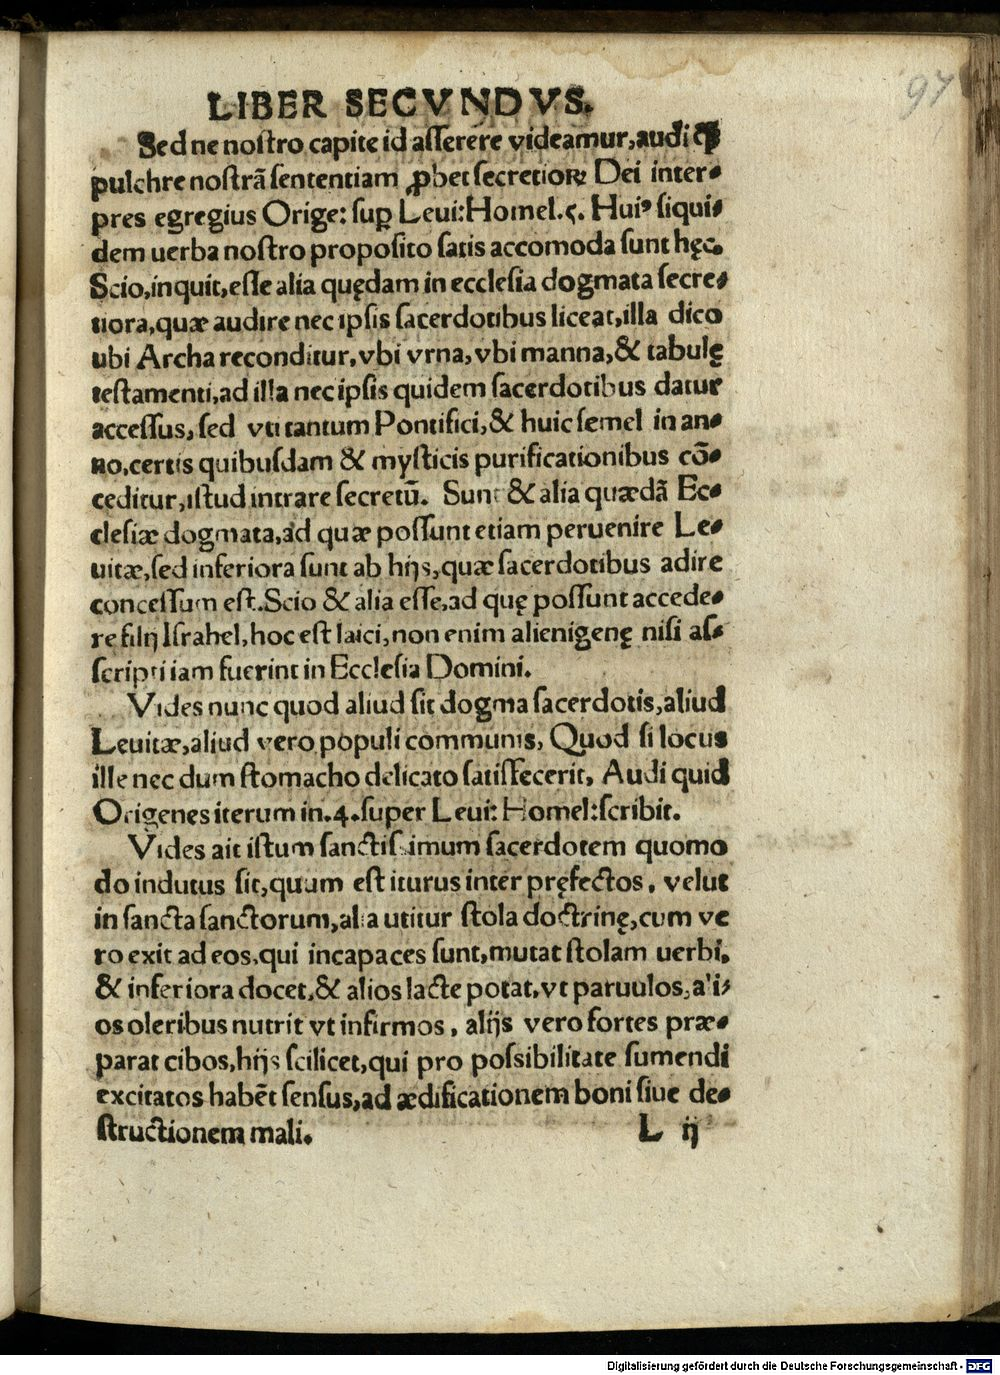 97
LIBER SECVNDVS.
Sed ne nostro capite id asserere videamur, audi ꝙ̃
pulchre nostrā sententiam ꝓbet secretioꝝ Dei inter-
pres egregius Orige: suꝑ Leui: Homel. 5. Huiꝰ siqui-
dem uerba nostro proposito satis accomoda sunt hęc.
Scio, inquit, esse alia quędam in ecclesia dogmata secre-
tiora, quæ audire nec ipsis sacerdotibus liceat, illa dico
ubi Archa reconditur, vbi vrna, vbi manna, & tabulę
testamenti, ad illa nec ipsis quidem sacerdotibus datur
accessus, sed vti tantum Pontifici, & huic semel in an-
no, certis quibusdam & mysticis purificationibus cō-
ceditur, istud intrare secretū. Sunt & alia quædā Ec-
clesiæ dogmata, ad quæ possunt etiam peruenire Le-
uitæ, sed inferiora sunt ab hijs, quæ sacerdotibus adire
concessum est. Scio & alia esse, ad quę possunt accede-
re filij Israhel, hoc est laici, non enim alienigenę nisi as-
scripti iam fuerint in Ecclesia Domini.
Vides nunc quod aliud sit dogma sacerdotis, aliud
Leuitæ, aliud vero populi communis, Quod si locus
ille nec dum stomacho delicato satisfecerit, Audi quid
Origenes iterum in. 4. super Leui: Homel: scribit.
Vides ait istum sanctissimum sacerdotem quomo
do indutus sit, quum est iturus inter pręfectos, velut
in sancta sanctorum, alia utitur stola doctrinę, cum ve
ro exit ad eos, qui incapaces sunt, mutat stolam uerbi,
& inferiora docet, & alios lacte potat, vt paruulos, ali-
os oleribus nutrit vt infirmos, alijs vero fortes præ-
parat cibos, hijs scilicet, qui pro possibilitate sumendi
excitatos habēt sensus, ad ædificationem boni siue de-
structionem mali.
L ij
Digitalisierung gefördert durch die Deutsche Forschungsgemeinschaft - DFG